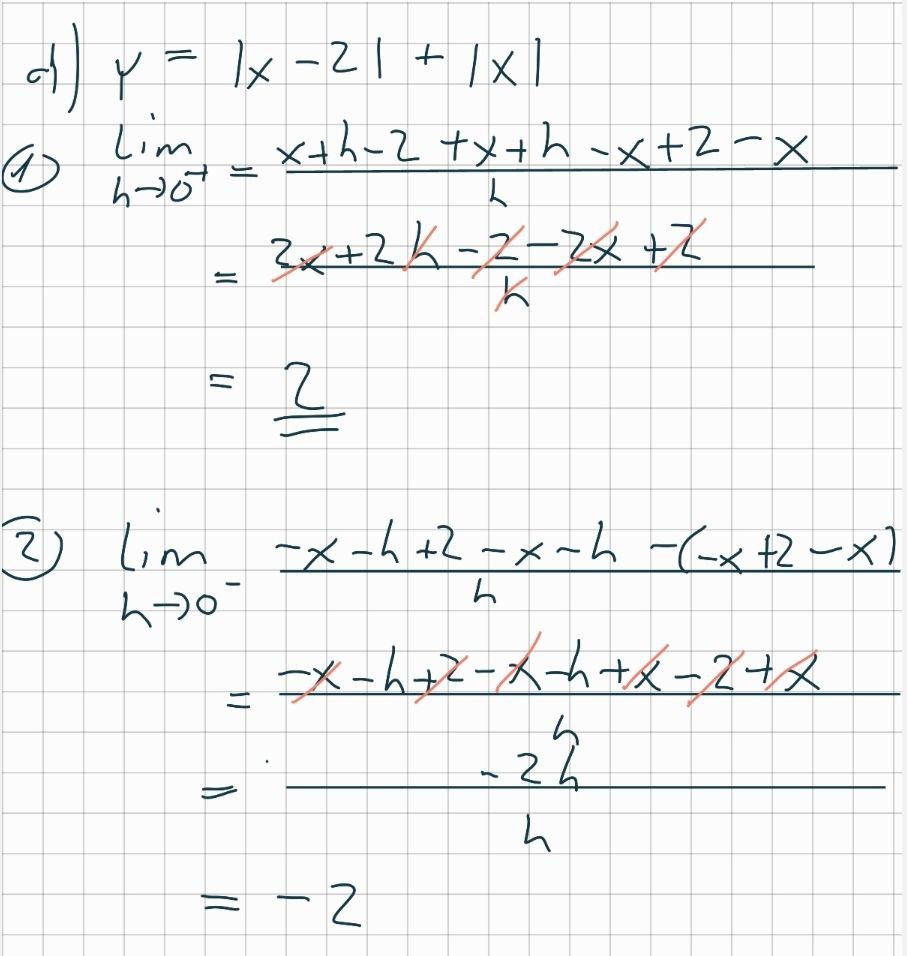 d) y = |x - 2| + |x|
① lim h→0⁺ = x+h-2 +x+h -x+2 -x / h
= 2x +2h -2 -2x +2 / h
= 2
② lim h→0⁻ -x -h +2 -x -h -(-x +2 -x) / h
= -x -h +2 -x -h +x -2 +x / h
= -2h / h
= -2